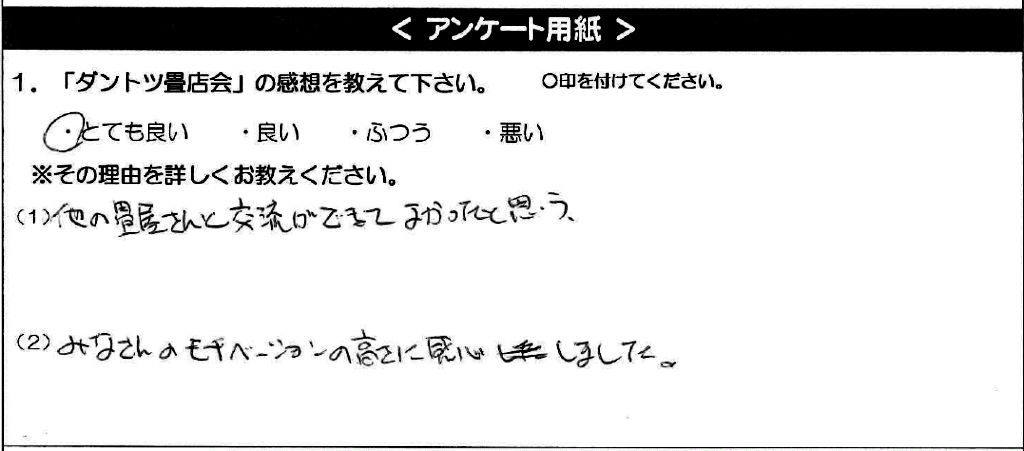 < アンケート用紙 >
1. 「ダントツ畳店会」の感想を教えて下さい。 ○印を付けてください。
・とても良い ・良い ・ふつう ・悪い
※その理由を詳しくお教えください。
(1)他の畳屋さんと交流ができてよかったと思う、
(2)みなさんのモチベーションの高さに感心しました。